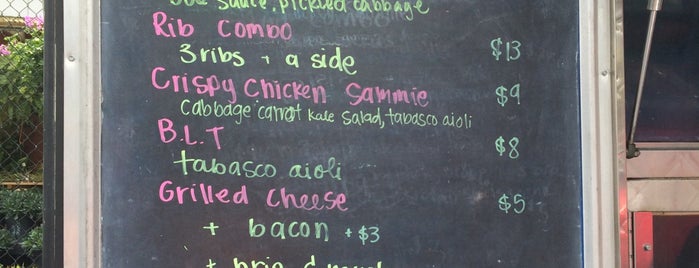 sauce, pickled cabbage
Rib Combo
3 ribs + a side $13
Crispy Chicken Sammie $9
cabbage carrot kale salad, tabasco aioli
B.L.T $8
tabasco aioli
Grilled Cheese $5
+ bacon + $3
+ brie